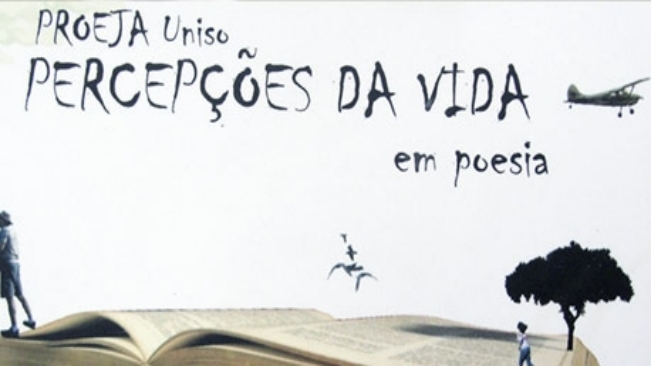 PROEJA Uniso
PERCEPÇÕES DA VIDA
em poesia